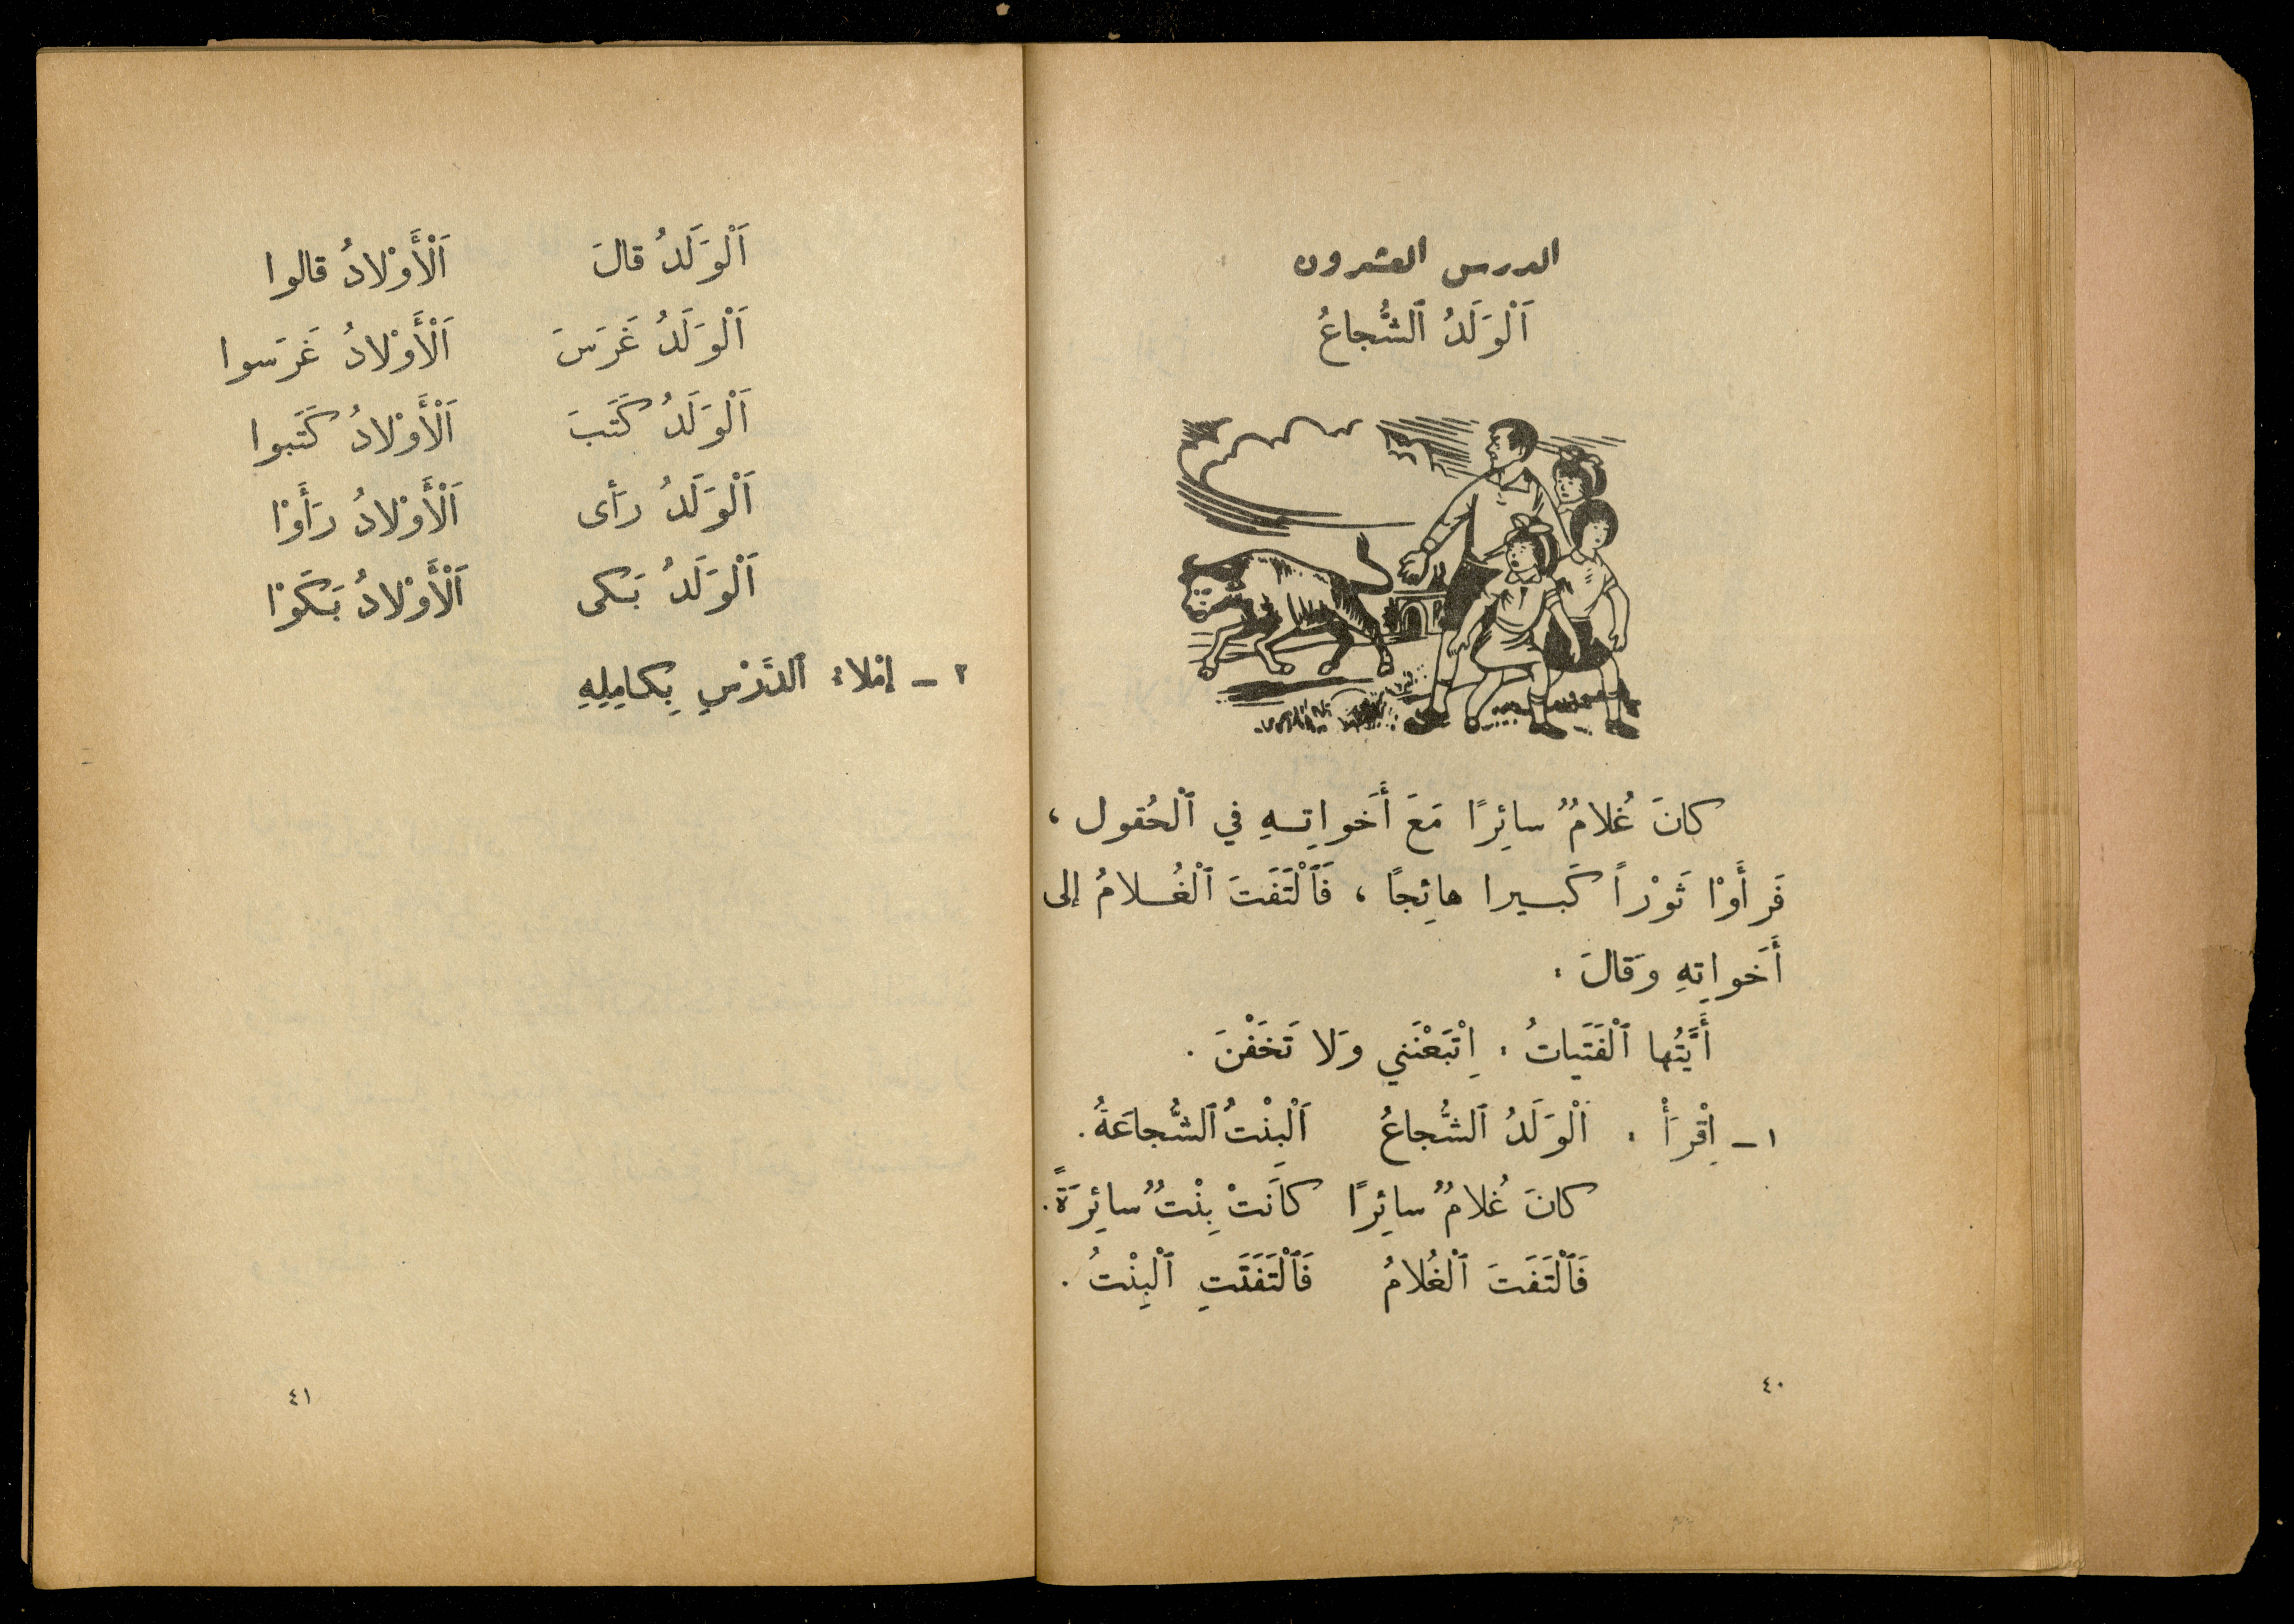 الدرس العشرون
اَلْوَلَدُ ٱلشُّجاعُ
كانَ غُلامٌ سائِرًا مَعَ أَخَواتِـهِ في ٱلْحُقول ،
فَرأَوْا ثَوْراً كَبـيرا هائِجًا ، فَٱلْتَفَتَ ٱلْغُـلامُ إلى
أَخَواتِهِ وَقالَ :
أَيَّتُها ٱلْفَتَياتُ : اِتْبَعْنَني وَلا تَخَفْنَ .
١ – اِقْرَأْ : اَلْوَلَدُ ٱلشُّجاعُ اَلْبِنْتُ ٱلشُّجاعَةُ .
كانَ غُلامٌ سائِرًا كانَتْ بِنْتٌ سائِرَةً .
فَٱلْتَفَتَ ٱلْغُلامُ فَٱلْتَفَتَتِ ٱلْبِنْتُ .
٤٠
اَلْوَلَدُ قالَ اَلْأَوْلادُ قالوا
اَلْوَلَدُ غَرَسَ اَلْأَوْلادُ غَرَسوا
اَلْوَلَدُ كَتَبَ اَلْأَوْلادُ كَتَبوا
اَلْوَلَدُ رَأى اَلْأَوْلادُ رَأَوْا
اَلْوَلَدُ بَكى اَلْأَوْلادُ بَكَوْا
٢ – إمْلاءُ ٱلدَّرْسِ بِكامِلِهِ
٤١